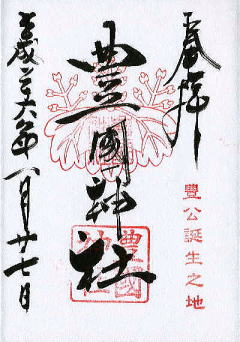 奉拝
豊公誕生之地
豊國神社
豊國神社
平成二十六年八月廿七日